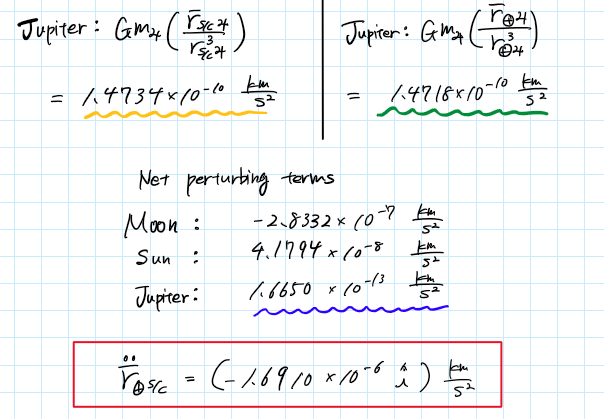 Jupiter: Gm♃ ( r̄s/c♃ / r³s/c♃ )
= 1.4734×10⁻¹⁰ km/s²
Jupiter: Gm♃ ( r̄⊕♃ / r³⊕♃ )
= 1.4718×10⁻¹⁰ km/s²
Net perturbing terms
Moon : -2.8332×10⁻⁷ km/s²
Sun : 4.1794×10⁻⁸ km/s²
Jupiter: 1.6650×10⁻¹³ km/s²
r̄̈⊕s/c = (-1.6910×10⁻⁶ î) km/s²